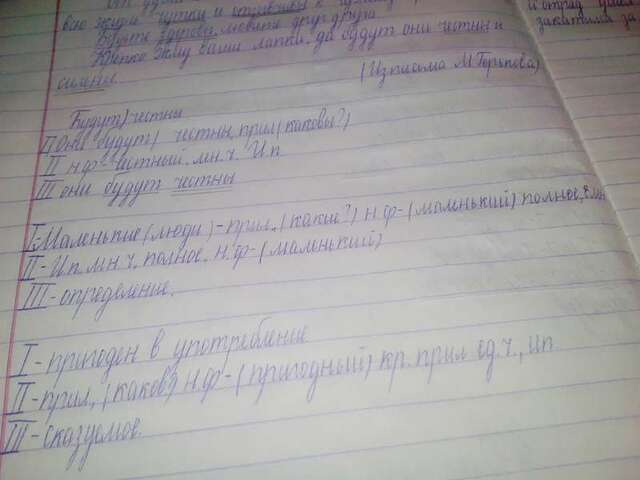 всю жизнь чутки и отзывчивы к
Будьте здоровы, любите друг друга
Крепко жму ваши лапки, да будут они честны и
сильные.
(Из письма М Горького)
Будут) честны
II Они будут) честны, прил (каковы?)
II н.ф- честный. мн.ч. И.п
III они будут честны
I-Маленькие (люди) - прил, (какие?) н ф- (маленький) полное,
II- Ип. мн ч. полное. н. ф - (маленький)
III- определение.
I- пригоден в употребление
II- прил, (каков?) н.ф- (пригодный) кр. прил ед. ч., ип.
III- Сказуемое.
и отряд